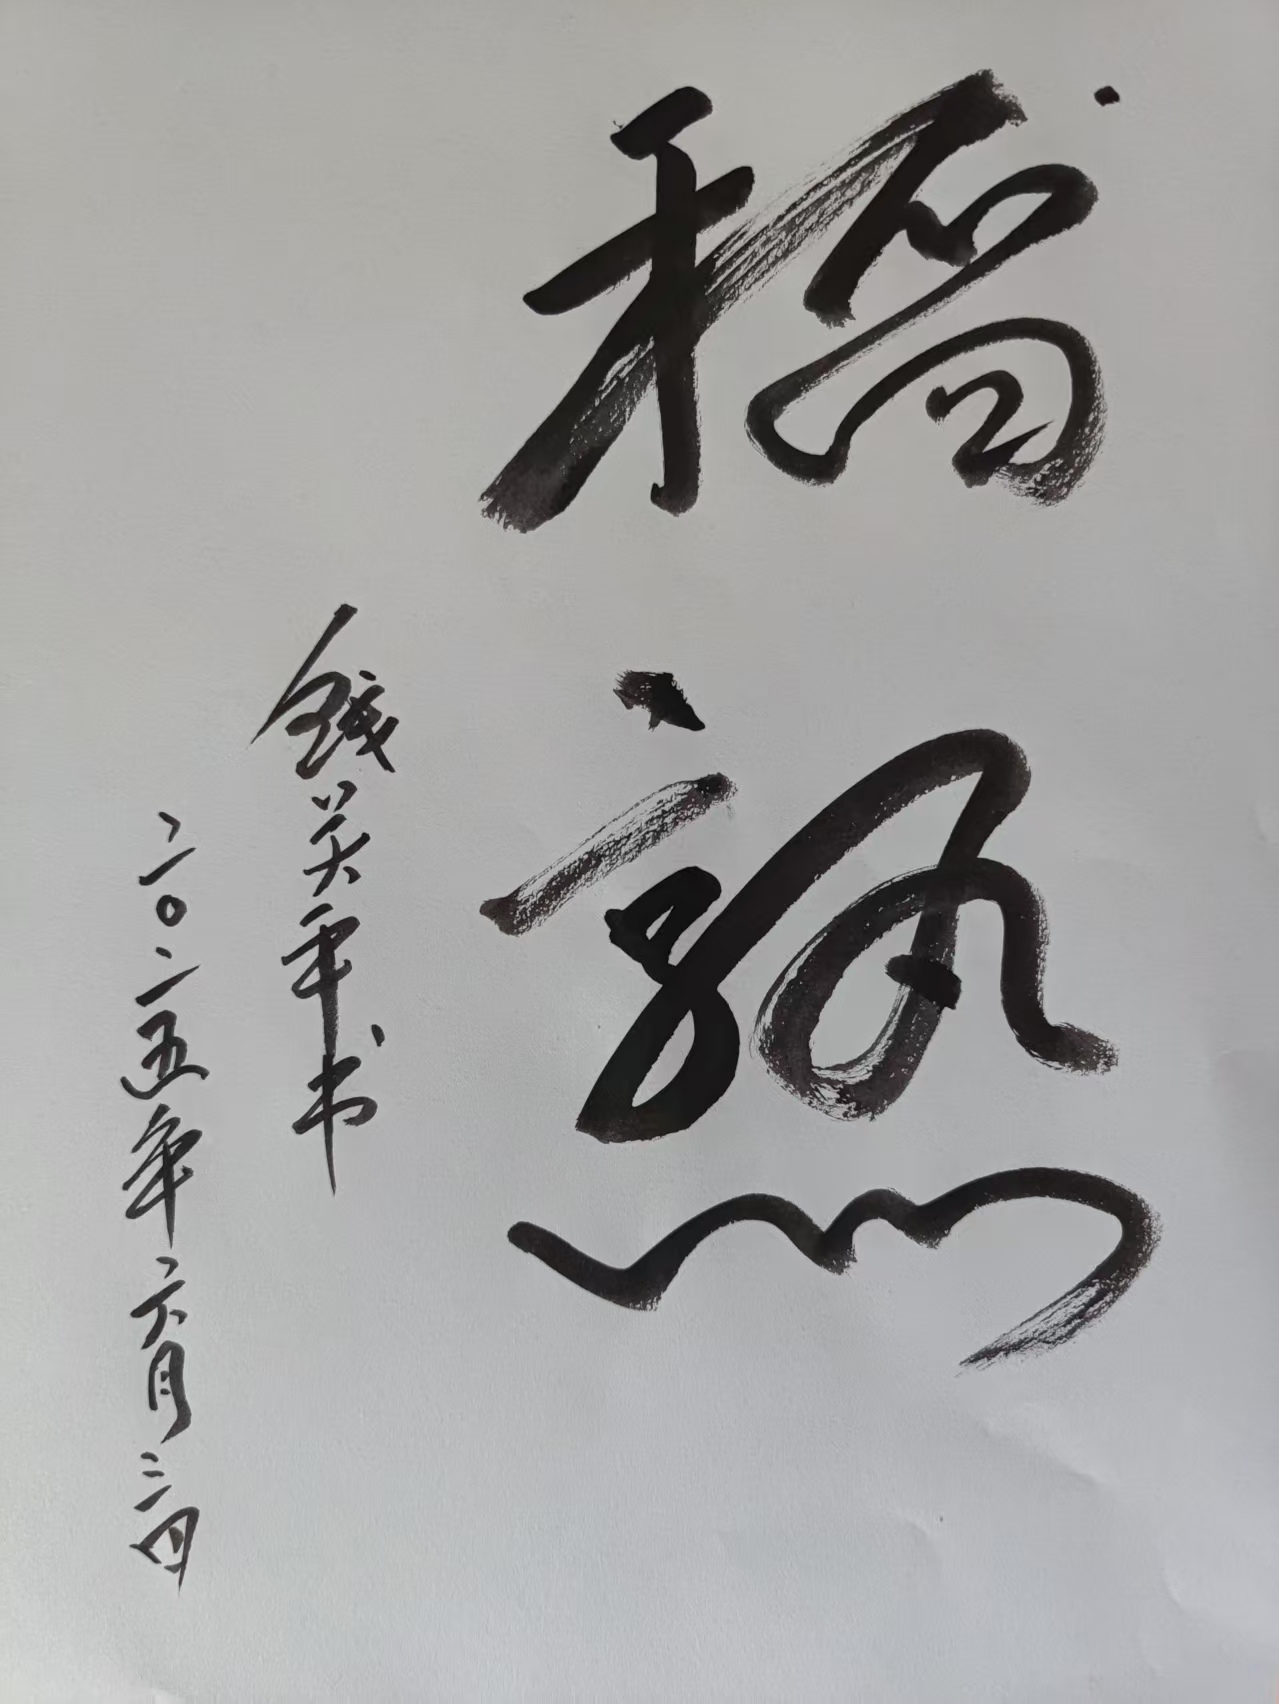 熟
钱关平书
二〇二五年六月三日